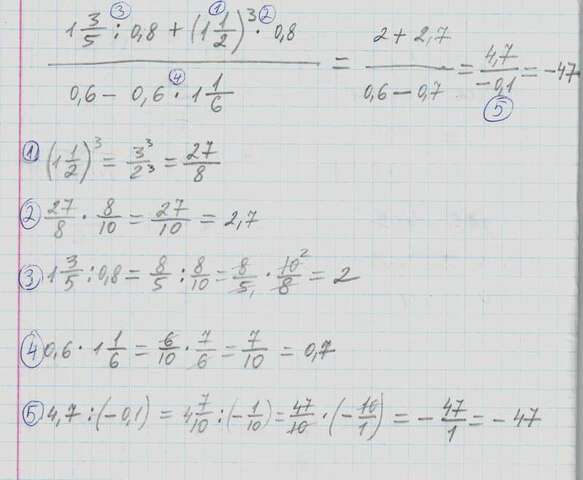 (1 3/5 : 0,8 + (1 1/2)³ · 0,8) / (0,6 − 0,6 · 1 1/6) = (2 + 2,7) / (0,6 − 0,7) = 4,7 / −0,1 = −47
① (1 1/2)³ = 3³/2³ = 27/8
② 27/8 · 8/10 = 27/10 = 2,7
③ 1 3/5 : 0,8 = 8/5 : 8/10 = 8/5 · 10²/8 = 2
④ 0,6 · 1 1/6 = 6/10 · 7/6 = 7/10 = 0,7
⑤ 4,7 : (−0,1) = 4 7/10 : (−1/10) = 47/10 · (−10/1) = −47/1 = −47